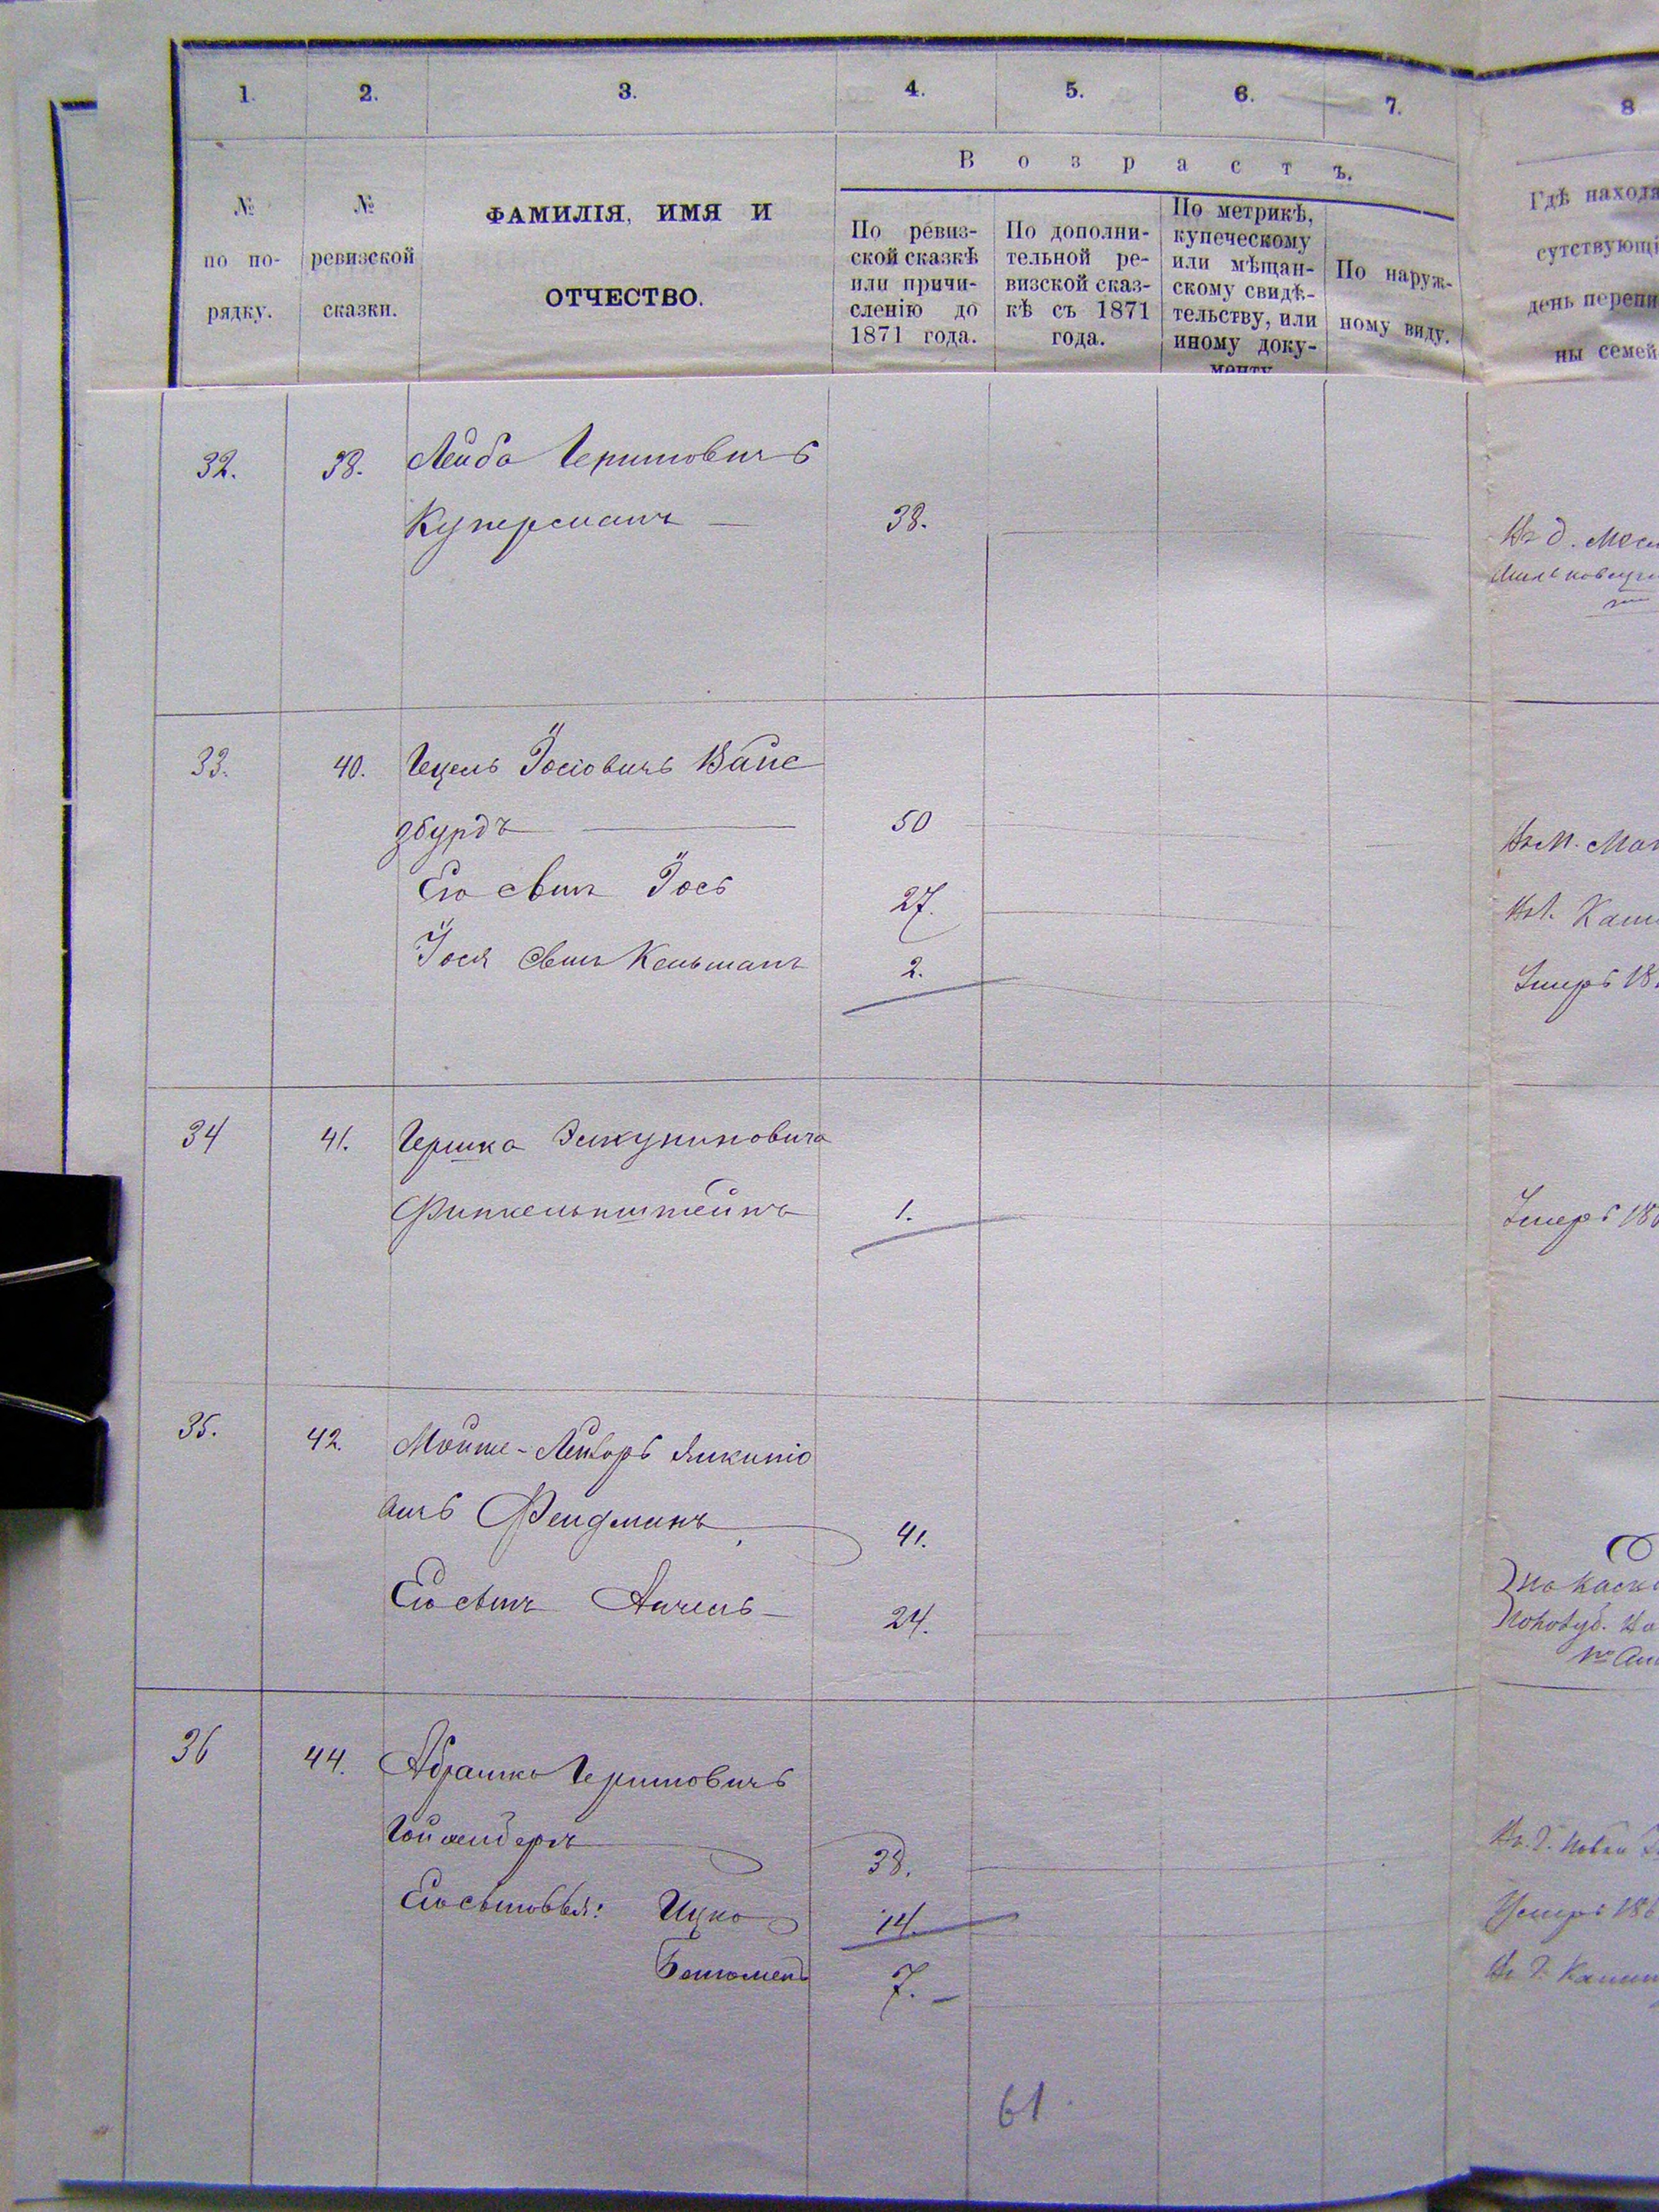 1. 2. 3. 4. 5. 6. 7. 8
В о з р а с т ъ.
№ по по- рядку.
№ ревизской сказки.
ФАМИЛІЯ, ИМЯ И
ОТЧЕСТВО.
По ревиз-
ской сказкѣ
или причи-
сленію до
1871 года.
По дополни-
тельной ре-
визской сказ-
кѣ съ 1871
года.
По метрикѣ,
купеческому
или мѣщан-
скому свидѣ-
тельству, или
иному доку-
менту
По наруж-
ному виду.
Гдѣ находя
сутствующі
день перепи
ны семей
32. 38. Лейба Гершковичъ
Куперманъ 38.
33. 40. Гецель Іосіовичъ Вайс
збурдъ 50
Его сынъ Іось 27.
Іося сынъ Кельманъ 2.
Умеръ 18
34 41. Гершко
Финкельштейнъ 1.
Умеръ 18
35. 42. Мойше-Лейзоръ
вичъ Фельдманъ 41.
Его сынъ Анчель 24.
36 44. Абрамко Гершковичъ
38.
Его сыновья: Ицко 14.
Умеръ 186
7.
61